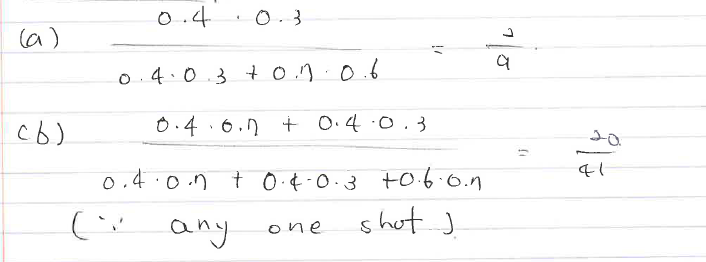 (a) 0.4 · 0.3 / 0.4·0.3 + 0.7·0.6 = 2/9.
(b) 0.4·0.7 + 0.4·0.3 / 0.4·0.7 + 0.4·0.3 + 0.6·0.7 = 20/41
(∵ any one shot)